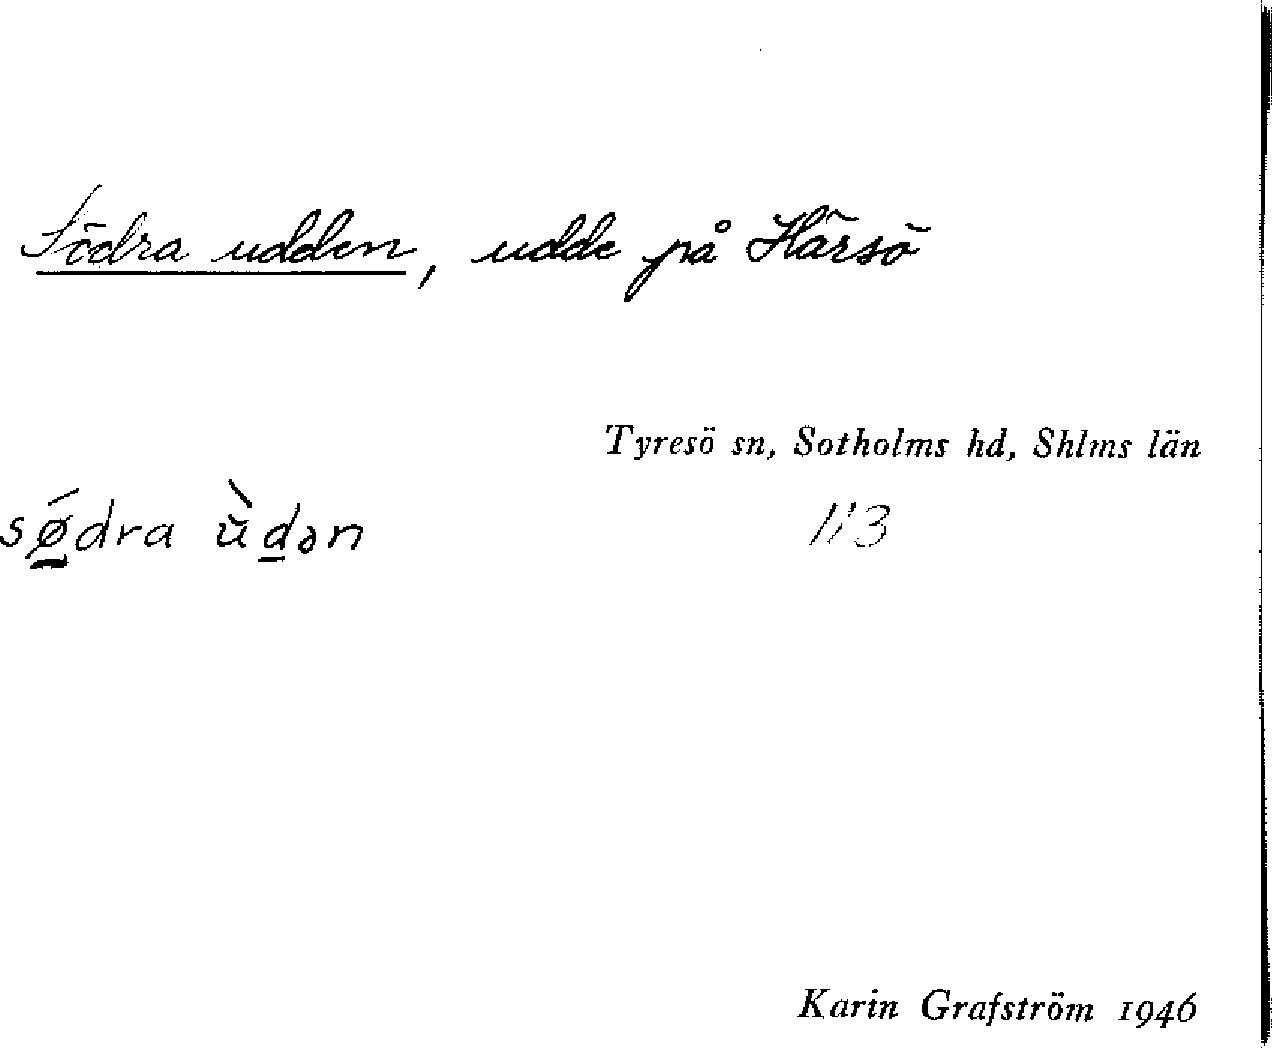 Södra udden, udde på Härsö
Tyresö sn, Sotholms hd, Shlms län
sǿdra ùdən
113
Karin Grafström 1946